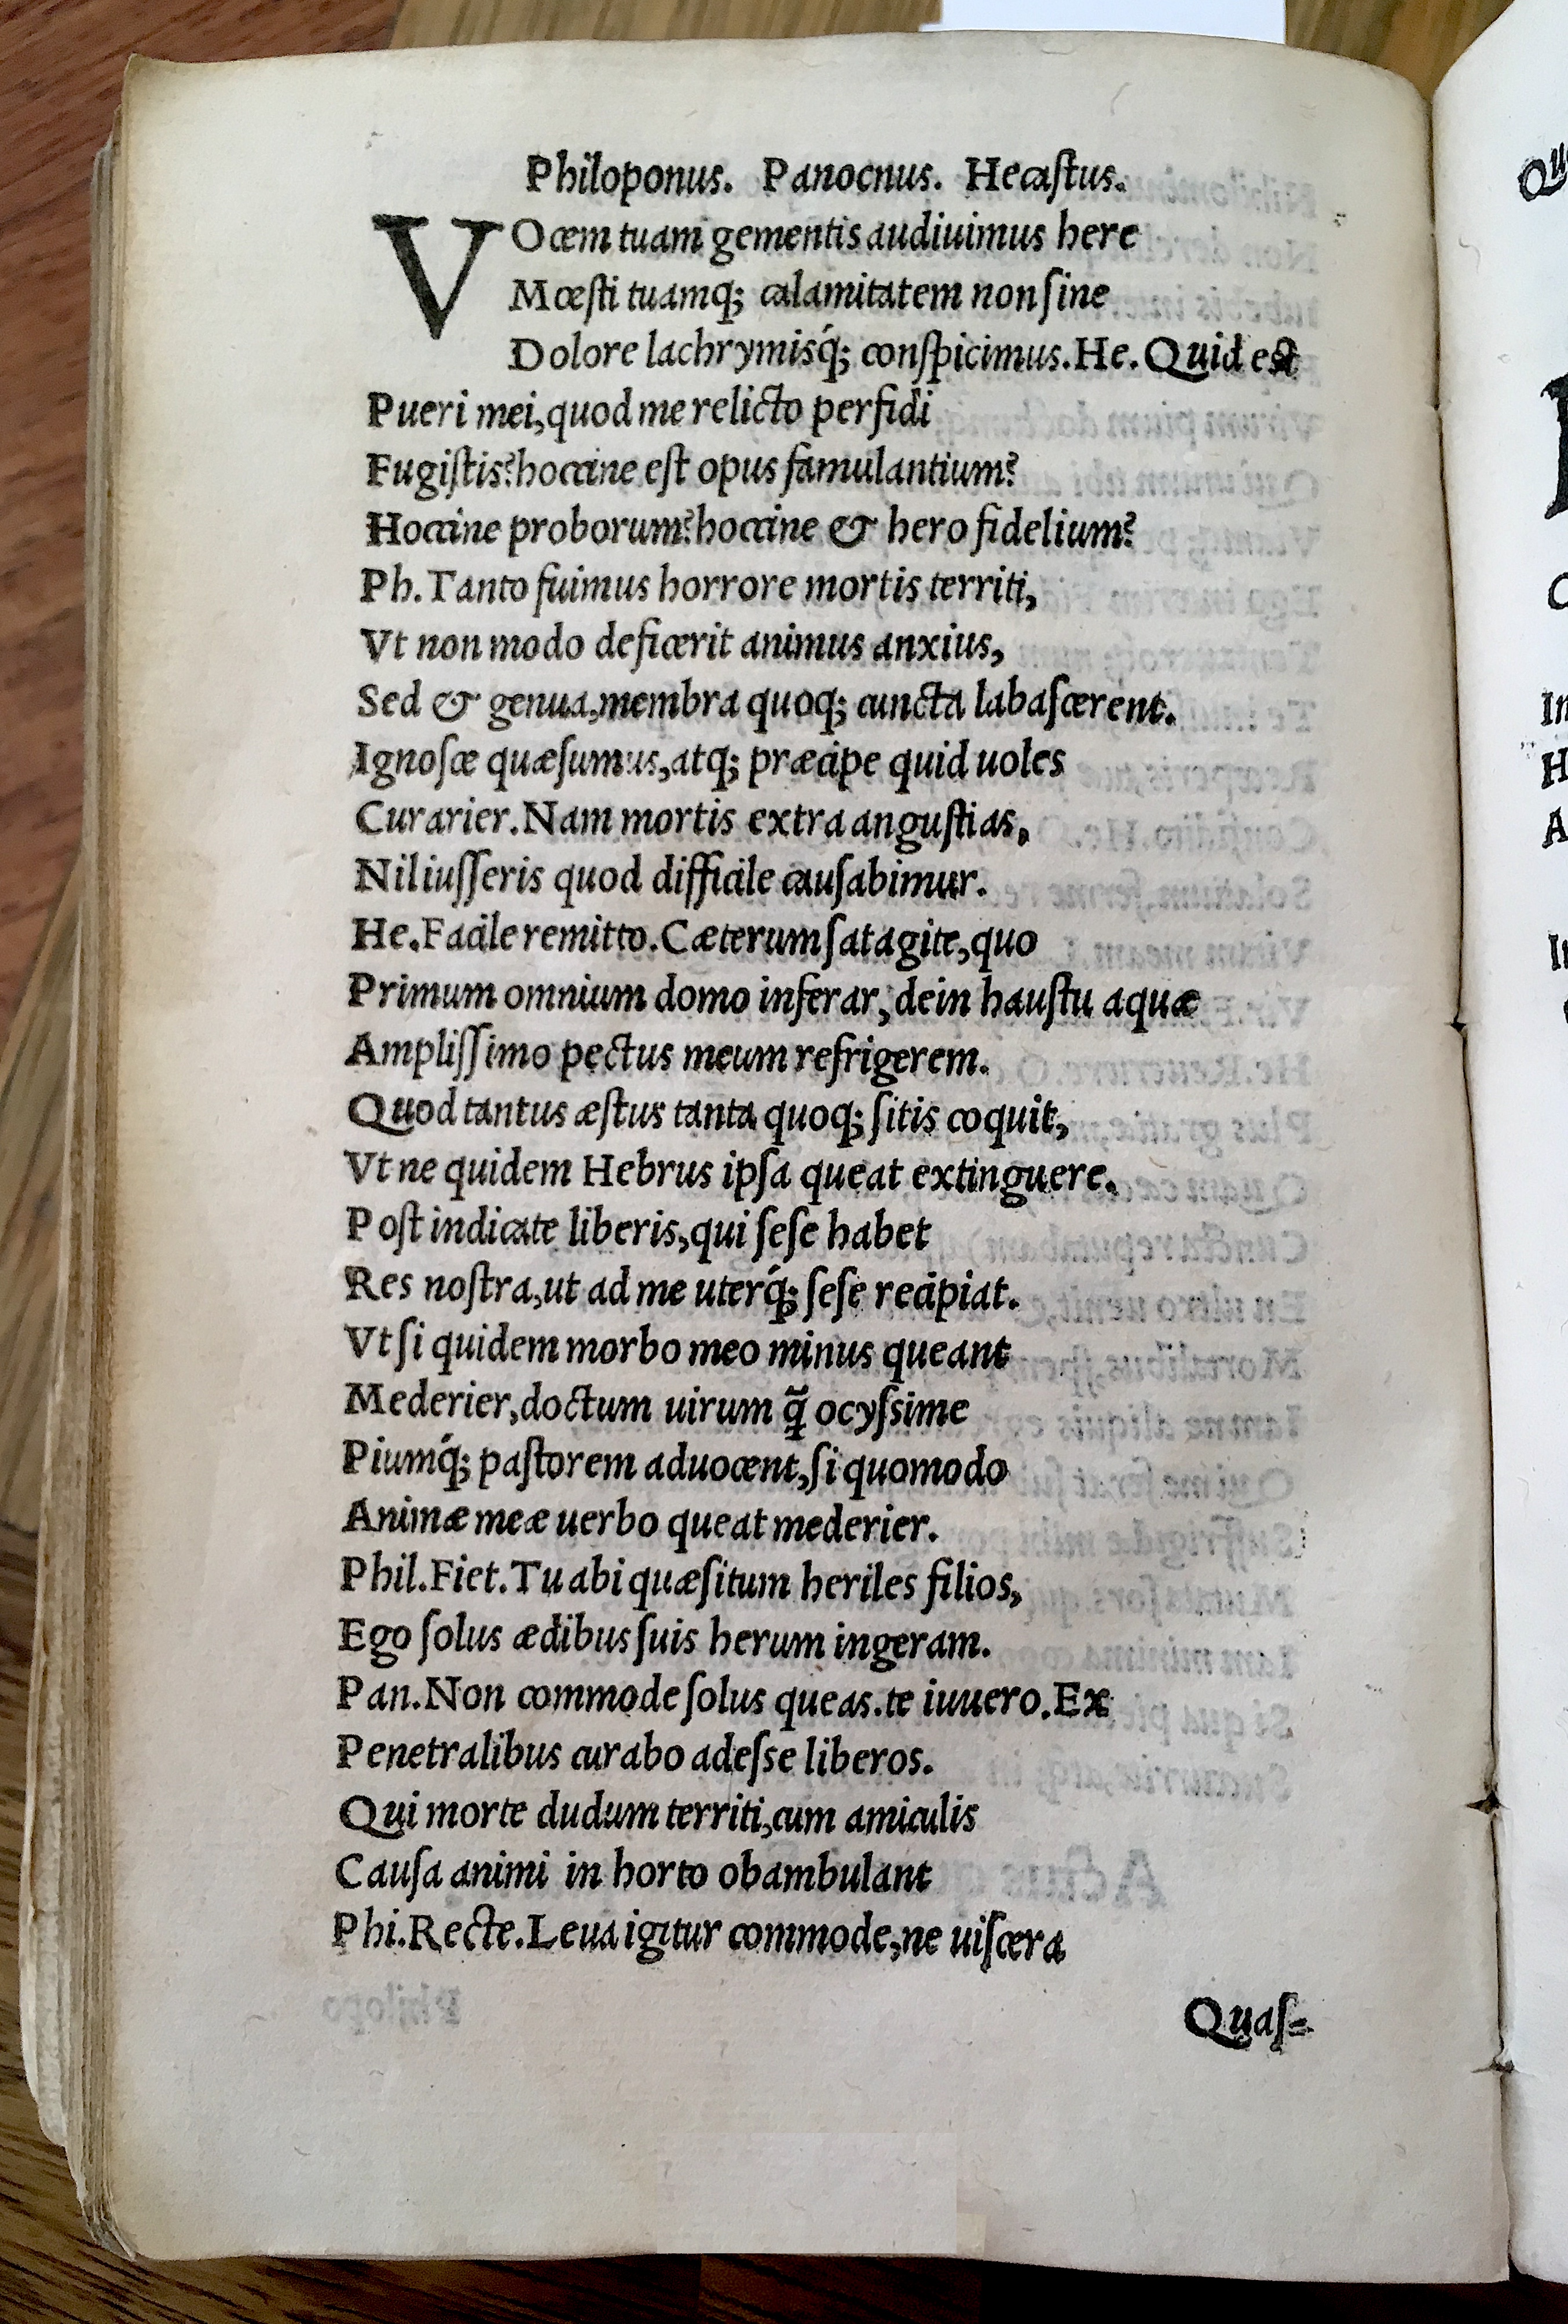 Philoponus. Panocnus. Hecaſtus.
VOcem tuam gementis audiuimus here
Mœſti tuamq; calamitatem non ſine
Dolore lachrymisq́; conſpicimus. He. Quid est
Pueri mei, quod me relicto perfidi
Fugiſtis? hoccine eſt opus famulantium?
Hoccine proborum? hoccine & hero fidelium?
Ph. Tanto fuimus horrore mortis territi,
Vt non modo deficerit animus anxius,
Sed & genua, membra quoq; cuncta labaſcerent.
Ignoſce quæſumus, atq; præcipe quid uoles
Curarier. Nam mortis extra anguſtias,
Nil iuſſeris quod difficile cauſabimur.
He. Facile remitto. Cæterum ſatagite, quo
Primum omnium domo inferar, dein hauſtu aquæ
Ampliſſimo pectus meum refrigerem.
Quod tantus æſtus tanta quoq; ſitis coquit,
Vt ne quidem Hebrus ipſa queat extinguere.
Poſt indicate liberis, qui ſeſe habet
Res noſtra, ut ad me uterq́; ſeſe recipiat.
Vt ſi quidem morbo meo minus queant
Mederier, doctum uirum q̃ ocyſsime
Piumq́; paſtorem aduocent, ſi quomodo
Animæ meæ uerbo queat mederier.
Phil. Fiet. Tu abi quæſitum heriles filios,
Ego ſolus ædibus ſuis herum ingeram.
Pan. Non commode ſolus queas. te iuuero. Ex
Penetralibus curabo adeſse liberos.
Qui morte dudum territi, cum amiculis
Cauſa animi in horto obambulant
Phi. Recte. Leua igitur commode, ne uiſcera
Quaſ=